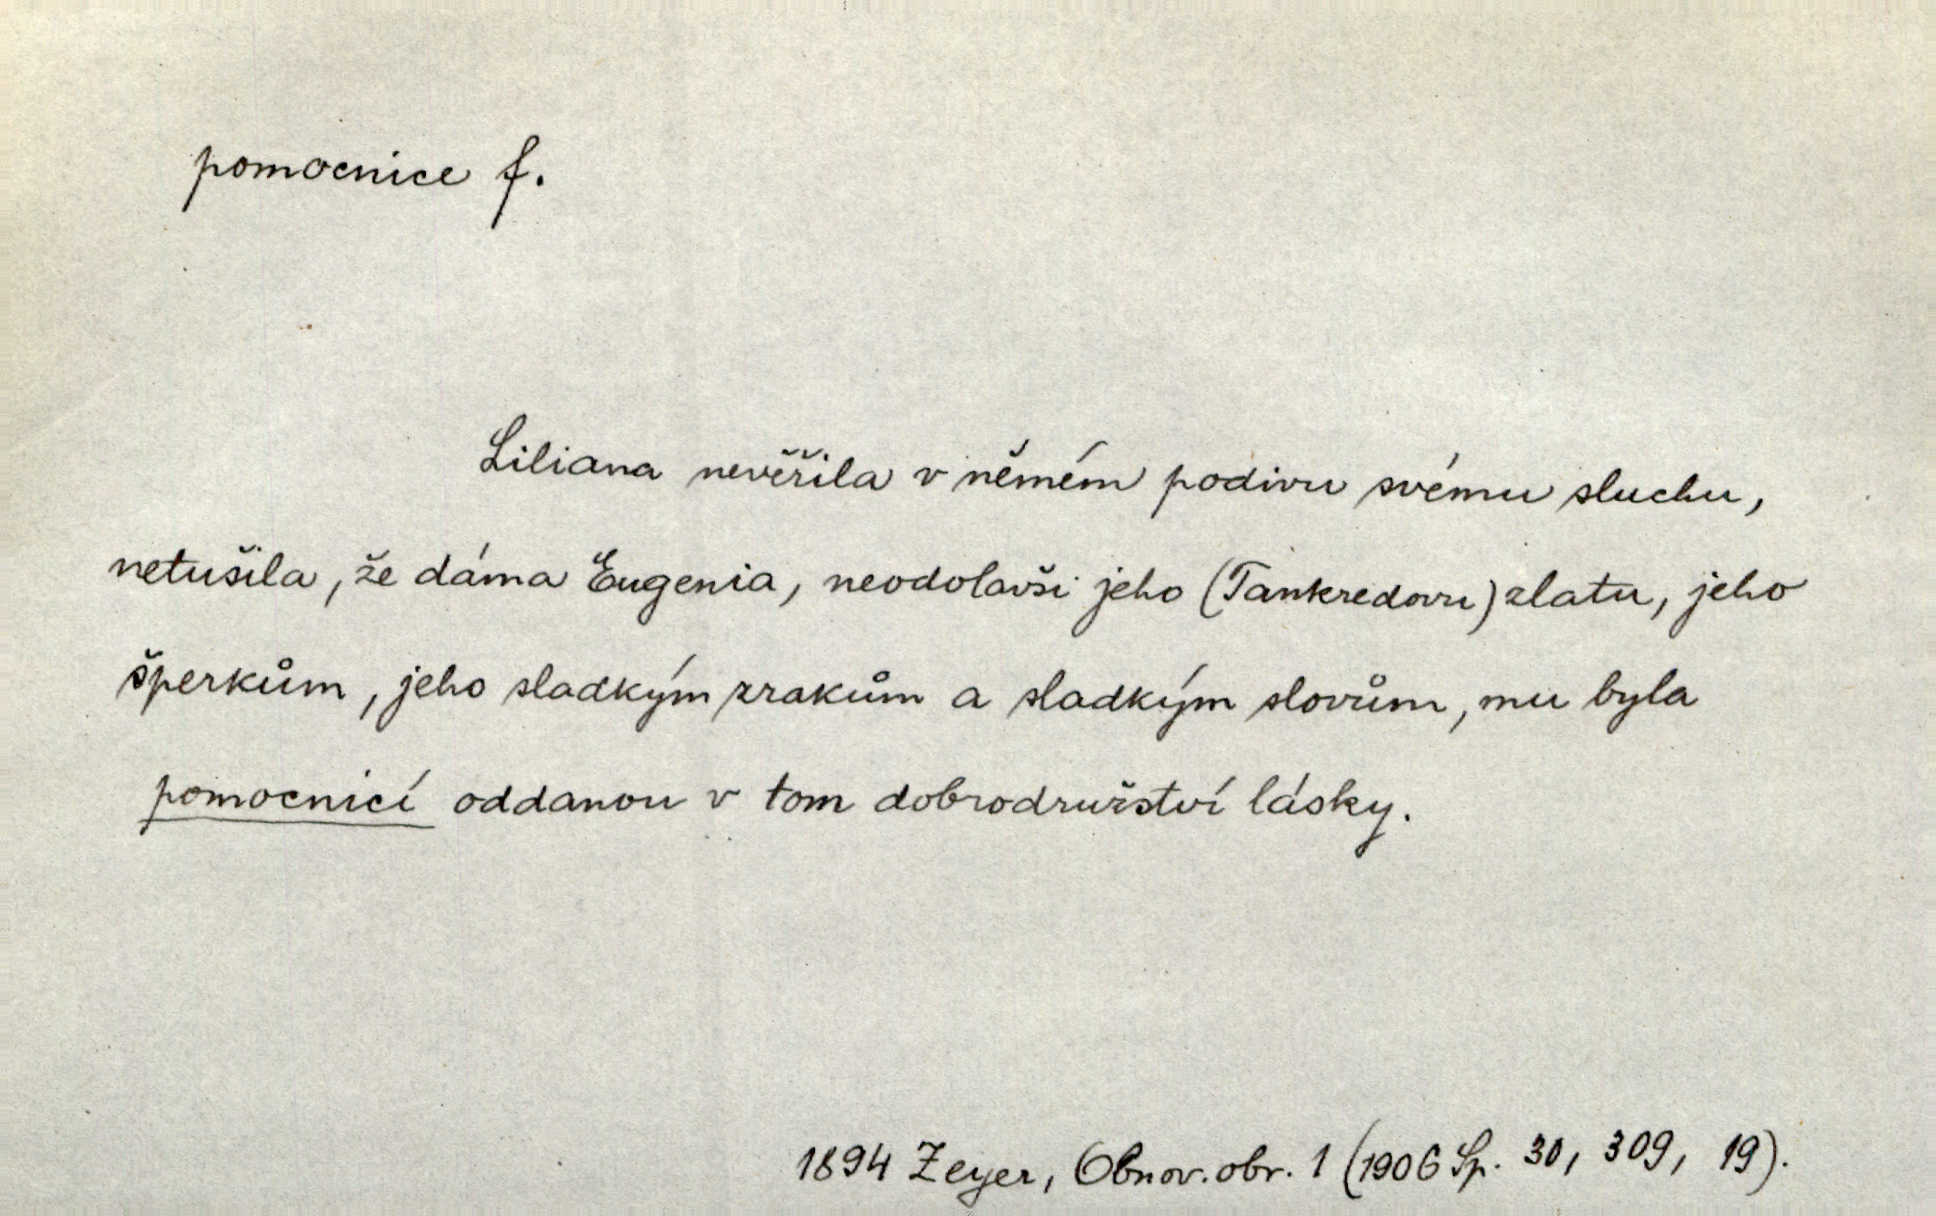 pomocnice f.
Liliana nevěřila v němém podivu svému sluchu,
netušila, že dáma Eugenia, neodolavši jeho (Tankredovu) zlatu, jeho
šperkům, jeho sladkým zrakům a sladkým slovům, mu byla
pomocnicí oddanou v tom dobrodružství lásky.
1894 Zeyer, Obnov. obr. 1 (1906 Sp. 30, 309, 19).